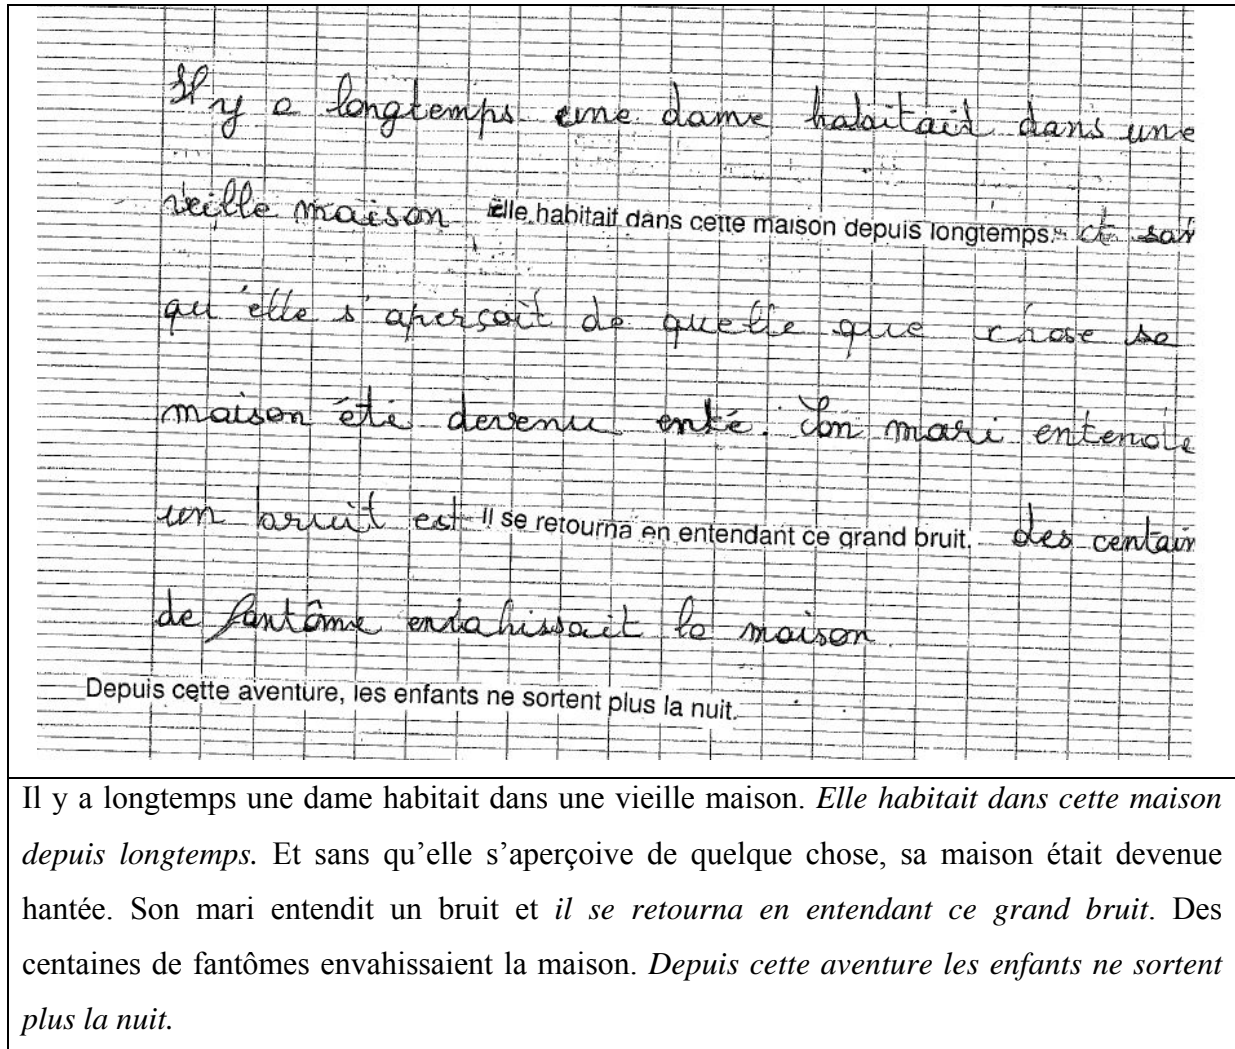 Il y a longtemps une dame habitait dans une
veille maison Elle habitait dans cette maison depuis longtemps. et san
qu'elle s'aperçoit de quelle que chose sa
maison été devenu enté. Son mari entende
un bruit est il se retourna en entendant ce grand bruit. des centain
de fantôme envahissait la maison.
Depuis cette aventure, les enfants ne sortent plus la nuit.
Il y a longtemps une dame habitait dans une vieille maison. Elle habitait dans cette maison
depuis longtemps. Et sans qu’elle s’aperçoive de quelque chose, sa maison était devenue
hantée. Son mari entendit un bruit et il se retourna en entendant ce grand bruit. Des
centaines de fantômes envahissaient la maison. Depuis cette aventure les enfants ne sortent
plus la nuit.